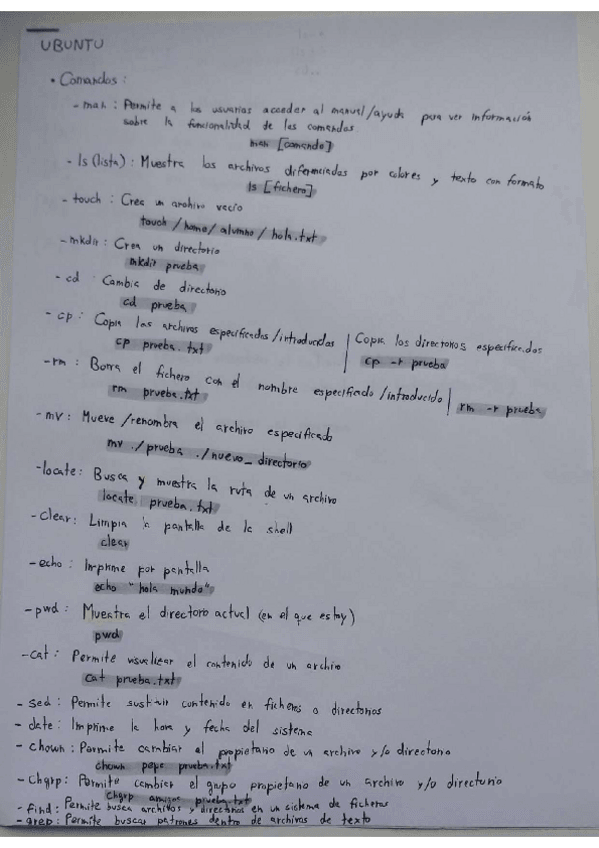 UBUNTU
• Comandos:
- man: Permite a los usuarios acceder al manual/ayuda para ver información
sobre la funcionalidad de los comandos
man [comando]
- ls (lista): Muestra los archivos diferenciados por colores y texto con formato
ls [fichero]
- touch: Crea un archivo vacío
touch /home/alumno/hola.txt
- mkdir: Crea un directorio
mkdir prueba
- cd Cambia de directorio
cd prueba
- cp: Copia los archivos especificados/introducidos | Copia los directorios especificados
cp prueba.txt | cp -r prueba
- rm: Borra el fichero con el nombre especificado/introducido | rm -r prueba
rm prueba.txt
- mv: Mueve/renombra el archivo especificado
mv ./prueba ./nuevo_directorio
- locate: Busca y muestra la ruta de un archivo
locate prueba.txt
- Clear: Limpia la pantalla de la shell
clear
- echo: Imprime por pantalla
echo "hola mundo"
- pwd: Muestra el directorio actual (en el que estoy)
pwd
- cat: Permite visualizar el contenido de un archivo
cat prueba.txt
- sed: Permite sustituir contenido en ficheros o directorios
- date: Imprime la hora y fecha del sistema
- chown: Permite cambiar el propietario de un archivo y/o directorio
chown pepe prueba.txt
- Chgrp: Permite cambiar el grupo propietario de un archivo y/o directorio
chgrp prueba.txt
- find: Permite busca archivos y directorios en un sistema de ficheros
- grep: Permite buscar patrones dentro de archivos de texto